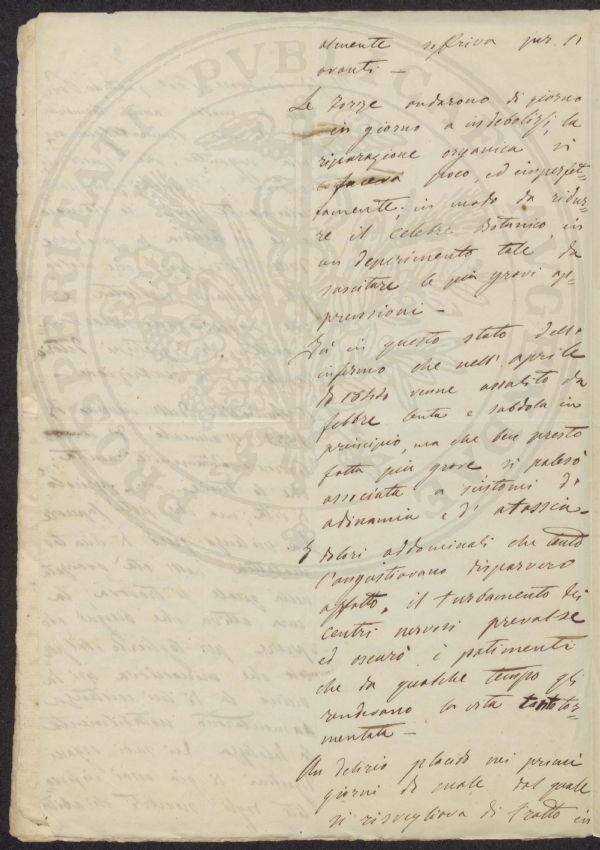 almente soffriva per sì
avanti –
Le forze andarono di giorno
in giorno a indebolirsi, la
riparazione organica si
faceva poco, ed imperfet-
tamente, in modo da ridur-
re il celebre Botanico, in
un deperimento tale da
suscitare le più gravi ap-
prensioni –
Fu in questo stato dello
infermo che nell'aprile
venne assalito da
febbre lenta e subdola in
principio, ma che ben presto
fatta più grave si palesò
associata a sintomi d'
adinamia e d'atassia –
I dolori addominali che tanto
l'angustiavano disparvero
affatto, il turbamento dei
centri nervosi prevalse
ed oscurò i patimenti
che da qualche tempo gli
rendevano la vita tor-
mentata –
Un delirio placido nei primi
giorni di male dal quale
si risvegliava di tratto in